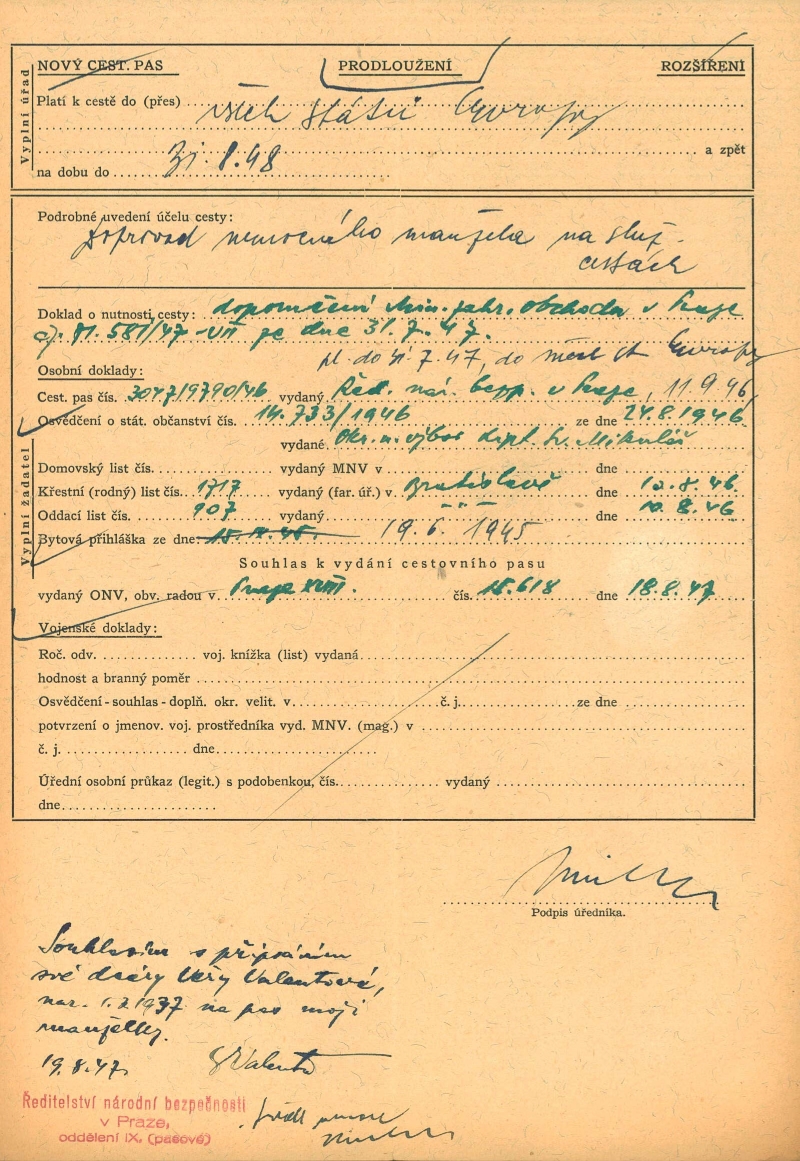 NOVÝ CEST. PAS PRODLOUŽENÍ ROZŠÍŘENÍ
Vyplní úřad
Platí k cestě do (přes) všech států Evropy
a zpět
na dobu do 31.8.48
Podrobné uvedení účelu cesty:
Doprovod nemocného manžela na služ.
cestách
Doklad o nutnosti cesty: doporučení Min. zahr. obchodu v Praze
čj. 581/47-VII ze dne 31.7.47.
pl. do 31.7.47, do všech st Evropy
Osobní doklady:
Cest. pas čís. 3047/9790/46 vydaný Řed. nár. bezp. v Praze, 11.9.46
Osvědčení o stát. občanství čís. 14.733/1946 ze dne 24.8.1946
vydané Okr. n. výbor Lipt. Sv. Mikuláš
Vyplní žadatel
Domovský list čís. vydaný MNV v dne
Křestní (rodný) list čís. 1717 vydaný (far. úř.) v Bratislavě dne 10.8.46
Oddací list čís. 907 vydaný -"- dne 10.8.46
Bytová přihláška ze dne: 19.6.1945
Souhlas k vydání cestovního pasu
vydaný ONV, obv. radou v Praze XVIII. čís. 18.618 dne 18.8.47
Vojenské doklady:
Roč. odv. voj. knížka (list) vydaná
hodnost a branný poměr
Osvědčení - souhlas - doplň. okr. velit. v č. j. ze dne
potvrzení o jmenov. voj. prostředníka vyd. MNV. (mag.) v
č. j. dne
Úřední osobní průkaz (legit.) s podobenkou, čís. vydaný
dne
Podpis úředníka.
Souhlasím s připsáním
své dcéry Věry Valentové,
nar. 1.2.1937 na pas mojí
manželky.
19.8.47. Valenta
Ředitelství národní bezpečnosti
v Praze,
oddělení IX, (pasové)